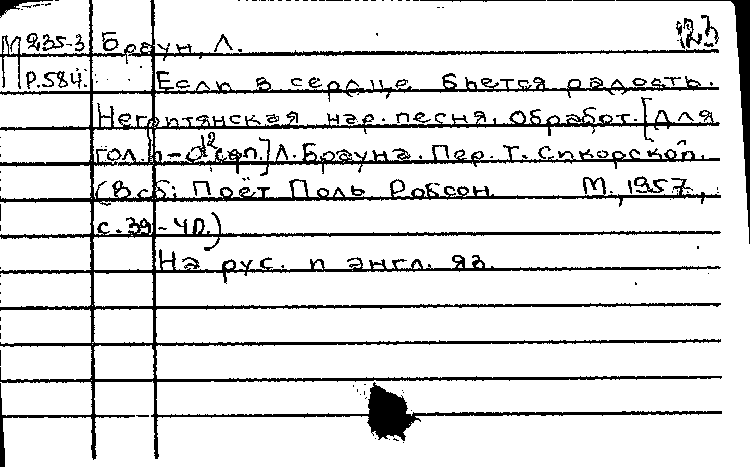 123
М 235-3 Браун, Л.
Р.584. Если в сердце бьется радость.
Негритянская нар. песня. Обработ. [Для
гол. п-о1² сдп.] Л. Брауна. Пер. Т. Сикорской.
(В сб: Поёт Поль Робсон М., 1957,
с. 39-40.)
На рус. и англ. яз.